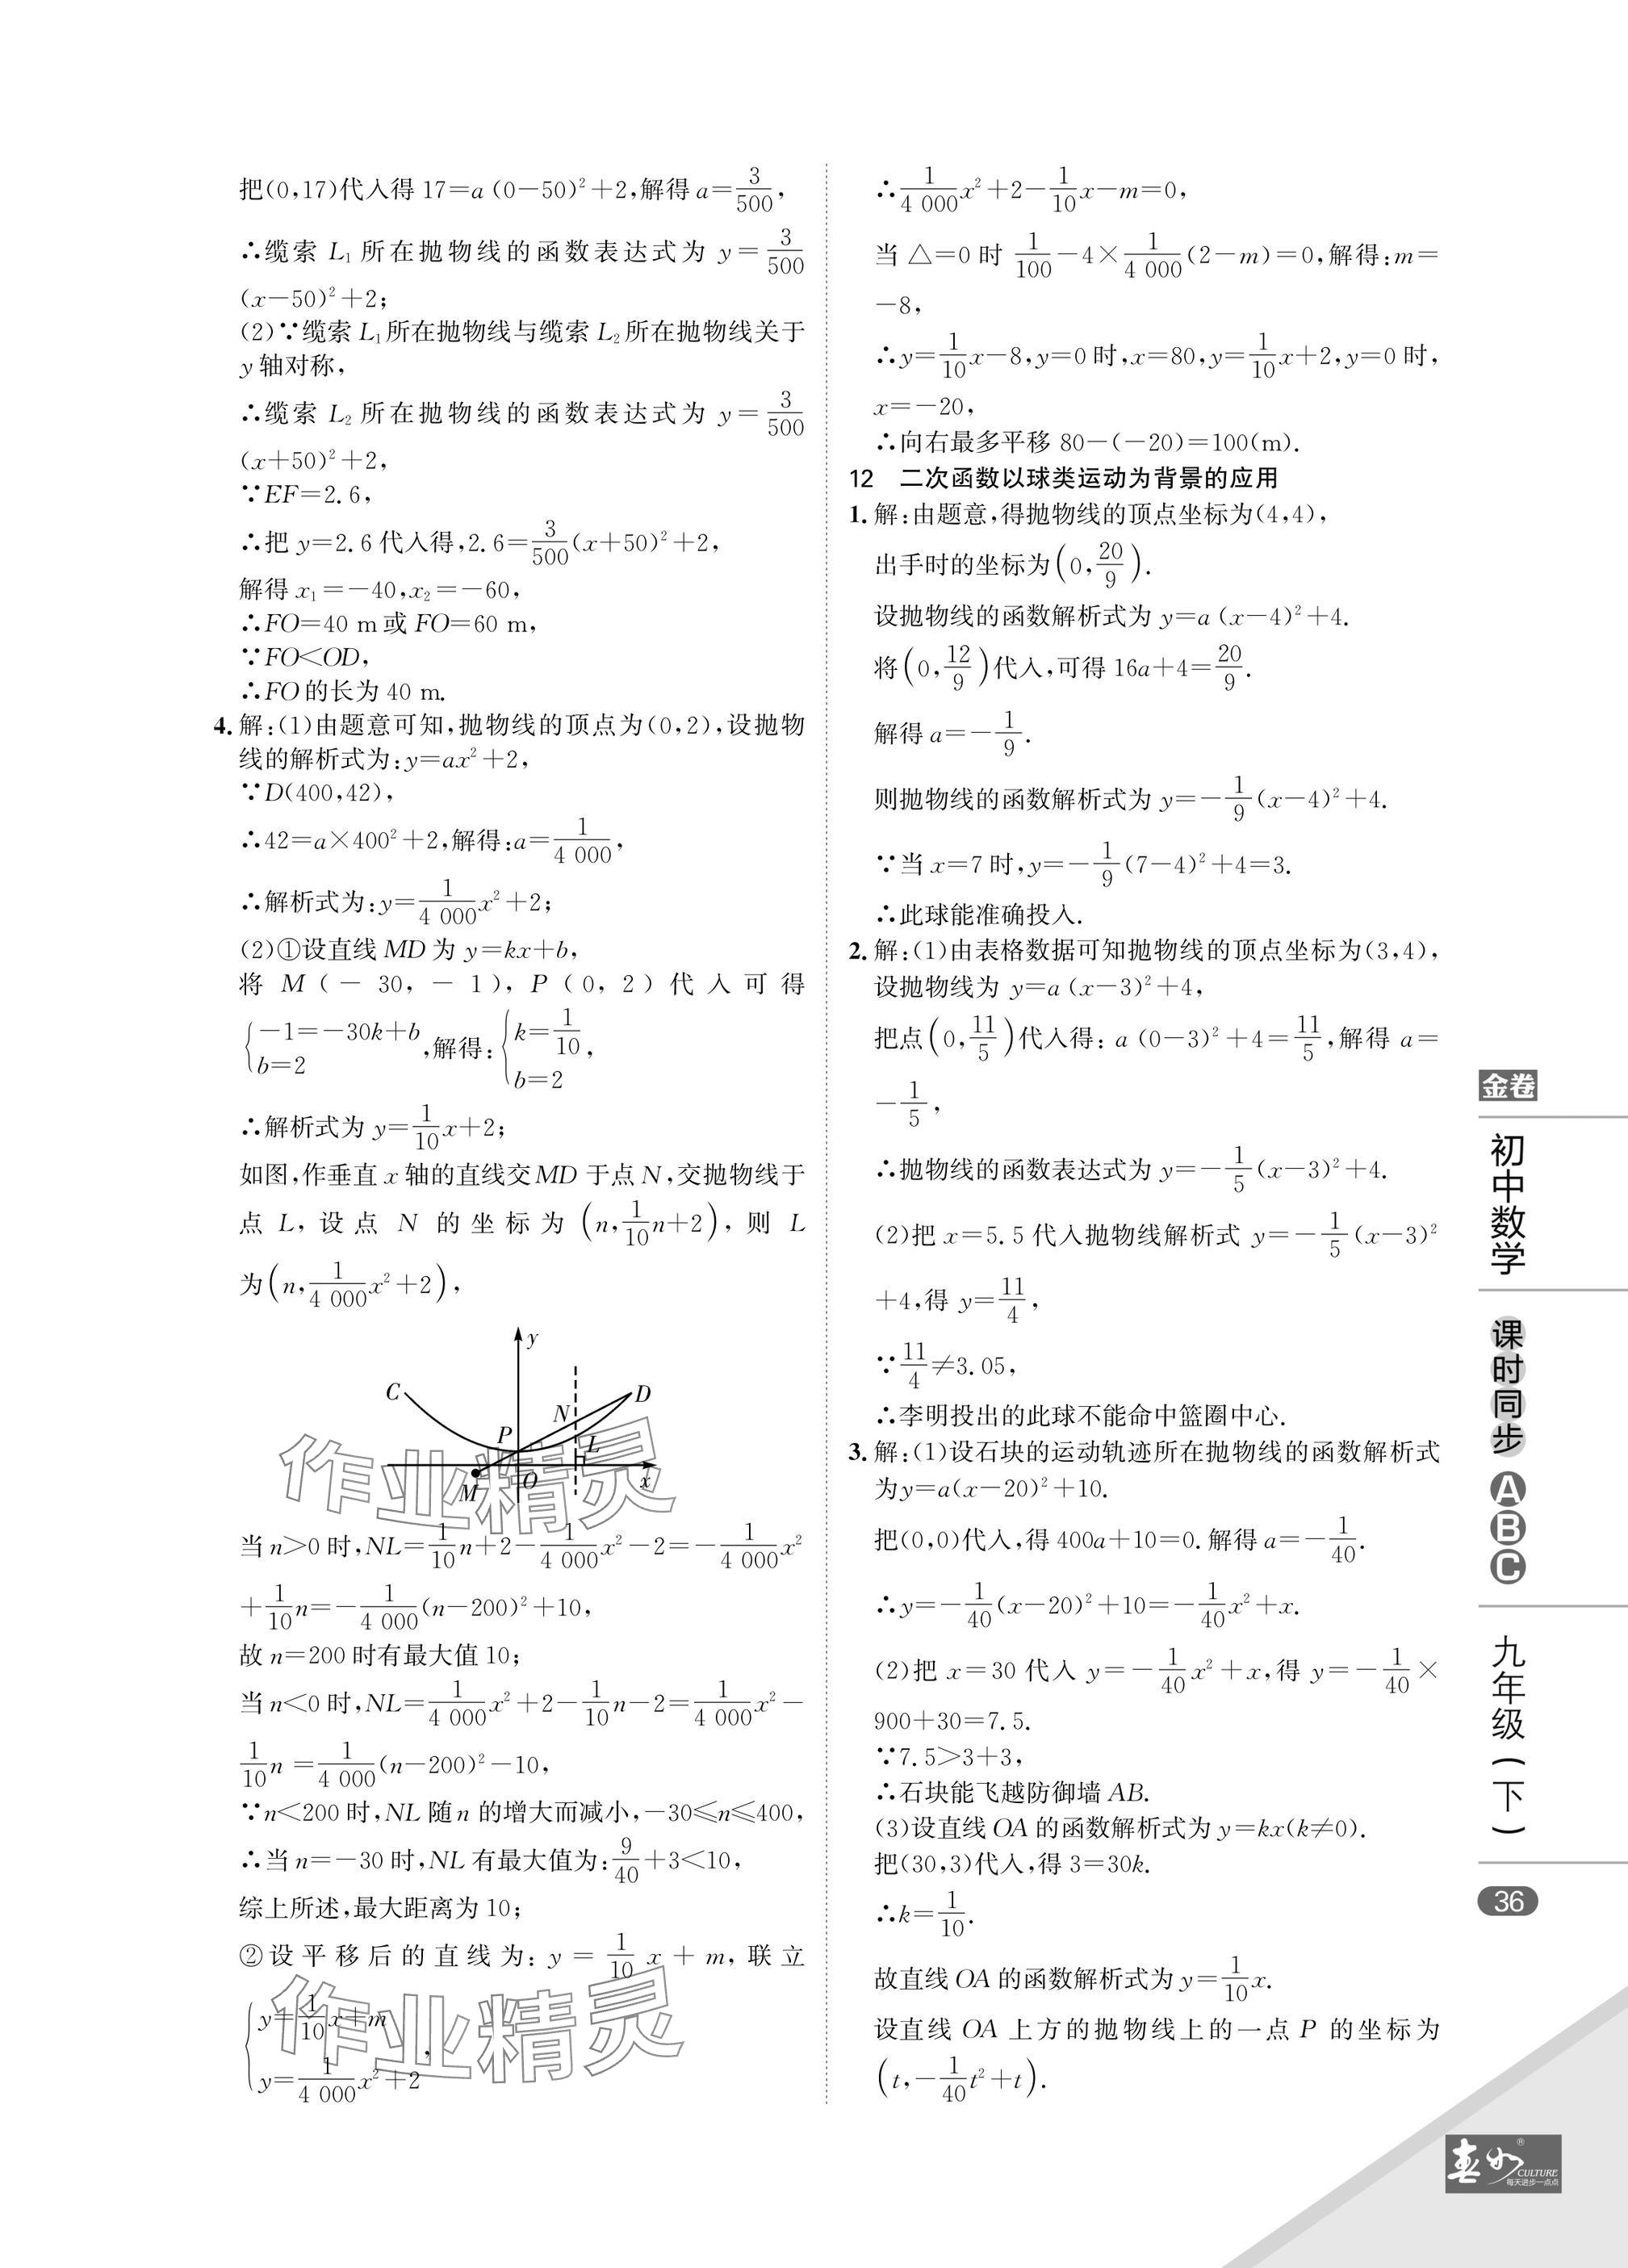 把(0,17)代入得 17=a (0-50)²+2,解得 a=3/500,
∴缆索 L₁ 所在抛物线的函数表达式为 y=3/500
(x-50)²+2;
(2)∵缆索 L₁所在抛物线与缆索 L₂所在抛物线关于
y 轴对称,
∴缆索 L₂ 所在抛物线的函数表达式为 y=3/500
(x+50)²+2,
∵EF=2.6,
∴把 y=2.6代入得,2.6=3/500(x+50)²+2,
解得 x₁=-40,x₂=-60,
∴FO=40 m或 FO=60 m,
∵FO<OD,
∴FO的长为 40 m.
4.解:(1)由题意可知,抛物线的顶点为(0,2),设抛物
线的解析式为:y=ax²+2,
∵D(400,42),
∴42=a×400²+2,解得:a=1/4 000,
∴解析式为:y=1/4 000x²+2;
(2)①设直线 MD 为 y=kx+b,
将 M(-30,-1),P(0,2)代入可得
{-1=-30k+b
b=2 ,解得:{k=1/10
b=2 ,
∴解析式为 y=1/10x+2;
如图,作垂直 x 轴的直线交MD 于点 N,交抛物线于
点 L,设点 N 的坐标为(n,1/10n+2),则 L
为(n,1/4 000x²+2),
y
C
D
N
P
L
M
O
x
当 n>0时,NL=1/10n+2-1/4 000x²-2=-1/4 000x²
+1/10n=-1/4 000(n-200)²+10,
故 n=200时有最大值 10;
当 n<0时,NL=1/4 000x²+2-1/10n-2=1/4 000x²-
1/10n=1/4 000(n-200)²-10,
∵n<200时,NL 随 n 的增大而减小,-30≤n≤400,
∴当 n=-30时,NL 有最大值为:9/40+3<10,
综上所述,最大距离为 10;
②设平移后的直线为:y=1/10x+m,联立
{y=1/10x+m
y=1/4 000x²+2 ,
∴1/4 000x²+2-1/10x-m=0,
当 △=0时 1/100-4×1/4 000(2-m)=0,解得:m=
-8,
∴y=1/10x-8,y=0时,x=80,y=1/10x+2,y=0时,
x=-20,
∴向右最多平移 80-(-20)=100(m).
12 二次函数以球类运动为背景的应用
1.解:由题意,得抛物线的顶点坐标为(4,4),
出手时的坐标为(0,20/9).
设抛物线的函数解析式为 y=a (x-4)²+4.
将(0,12/9)代入,可得 16a+4=20/9.
解得 a=-1/9.
则抛物线的函数解析式为 y=-1/9(x-4)²+4.
∵当 x=7时,y=-1/9(7-4)²+4=3.
∴此球能准确投入.
2.解:(1)由表格数据可知抛物线的顶点坐标为(3,4),
设抛物线为 y=a (x-3)²+4,
把点(0,11/5)代入得:a (0-3)²+4=11/5,解得 a=
-1/5,
∴抛物线的函数表达式为 y=-1/5(x-3)²+4.
(2)把 x=5.5代入抛物线解析式 y=-1/5(x-3)²
+4,得 y=11/4,
∵11/4≠3.05,
∴李明投出的此球不能命中篮圈中心.
3.解:(1)设石块的运动轨迹所在抛物线的函数解析式
为y=a(x-20)²+10.
把(0,0)代入,得 400a+10=0.解得 a=-1/40.
∴y=-1/40(x-20)²+10=-1/40x²+x.
(2)把 x=30 代入 y=-1/40x²+x,得 y=-1/40×
900+30=7.5.
∵7.5>3+3,
∴石块能飞越防御墙 AB.
(3)设直线 OA 的函数解析式为 y=kx(k≠0).
把(30,3)代入,得 3=30k.
∴k=1/10.
故直线 OA 的函数解析式为 y=1/10x.
设直线 OA 上方的抛物线上的一点 P 的坐标为
(t,-1/40t²+t).
金卷
初中数学
课时同步
ABC
九年级(下)
36
作业精灵
作业精灵
春如®
CULTURE
每天进步一点点